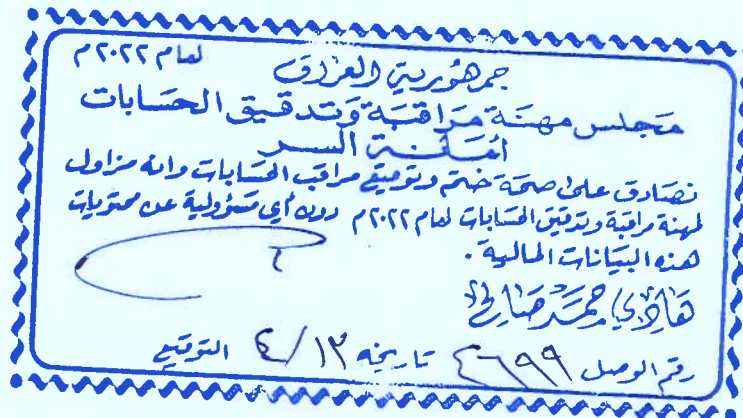 جمهورية العراق لعام ٢٠٢٢م
مجلس مهنة مراقبة وتدقيق الحسابات
أمانة السر
نصادق على صحة ختم وتوقيع مراقب الحسابات وانه مزاول
لمهنة مراقبة وتدقيق الحسابات لعام ٢٠٢٢م دون أي مسؤولية عن محتويات
هذه البيانات المالية.
رقم الوصل ٤٦٩٩ تاريخه ٤/١٣ التوقيع